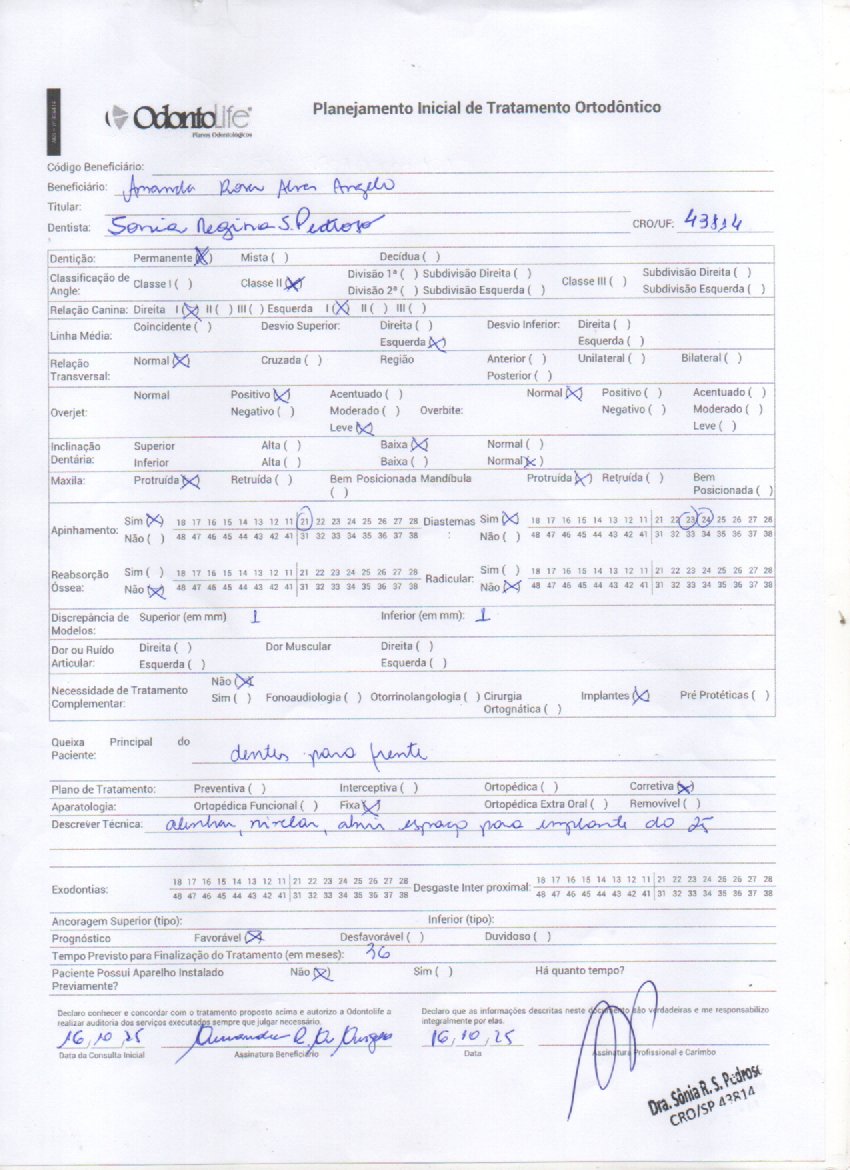 OdontoLife
Planos Odontológicos
Planejamento Inicial de Tratamento Ortodôntico
Código Beneficiário:
Beneficiário: Amanda Rosa Alves Angelo
Titular:
Dentista: Sonia Regina S. Pedroso CRO/UF: 43814
Dentição: Permanente (X) Mista ( ) Decídua ( )
Classificação de Angle: Classe I ( ) Classe II (X) Divisão 1ª ( ) Subdivisão Direita ( ) Classe III ( ) Subdivisão Direita ( )
Divisão 2ª ( ) Subdivisão Esquerda ( ) Subdivisão Esquerda ( )
Relação Canina: Direita I (X) II ( ) III ( ) Esquerda I (X) II ( ) III ( )
Linha Média: Coincidente ( ) Desvio Superior: Direita ( ) Desvio Inferior: Direita ( )
Esquerda (X) Esquerda ( )
Relação Transversal: Normal (X) Cruzada ( ) Região Anterior ( ) Unilateral ( ) Bilateral ( )
Posterior ( )
Overjet: Normal Positivo (X) Acentuado ( ) Overbite: Normal (X) Positivo ( ) Acentuado ( )
Negativo ( ) Moderado ( ) Negativo ( ) Moderado ( )
Leve (X) Leve ( )
Inclinação Dentária: Superior Alta ( ) Baixa (X) Normal ( )
Inferior Alta ( ) Baixa ( ) Normal (X)
Maxila: Protruída (X) Retruída ( ) Bem Posicionada ( ) Mandíbula Protruída (X) Retruída ( ) Bem Posicionada ( )
Apinhamento: Sim (X) 18 17 16 15 14 13 12 11 21 22 23 24 25 26 27 28 Diastemas: Sim (X) 18 17 16 15 14 13 12 11 21 22 23 24 25 26 27 28
Não ( ) 48 47 46 45 44 43 42 41 31 32 33 34 35 36 37 38 Não ( ) 48 47 46 45 44 43 42 41 31 32 33 34 35 36 37 38
Reabsorção Óssea: Sim ( ) 18 17 16 15 14 13 12 11 21 22 23 24 25 26 27 28 Radicular: Sim ( ) 18 17 16 15 14 13 12 11 21 22 23 24 25 26 27 28
Não (X) 48 47 46 45 44 43 42 41 31 32 33 34 35 36 37 38 Não (X) 48 47 46 45 44 43 42 41 31 32 33 34 35 36 37 38
Discrepância de Modelos: Superior (em mm) 1 Inferior (em mm): 1
Dor ou Ruído Articular: Direita ( ) Dor Muscular Direita ( )
Esquerda ( ) Esquerda ( )
Necessidade de Tratamento Complementar: Não (X)
Sim ( ) Fonoaudiologia ( ) Otorrinolangologia ( ) Cirurgia Ortognática ( ) Implantes (X) Pré Protéticas ( )
Queixa Principal do Paciente: dentes para frente
Plano de Tratamento: Preventiva ( ) Interceptiva ( ) Ortopédica ( ) Corretiva (X)
Aparatologia: Ortopédica Funcional ( ) Fixa (X) Ortopédica Extra Oral ( ) Removível ( )
Descrever Técnica: alinhar, nivelar, abrir espaço para implante do 25
Exodontias: 18 17 16 15 14 13 12 11 21 22 23 24 25 26 27 28 Desgaste Inter proximal: 18 17 16 15 14 13 12 11 21 22 23 24 25 26 27 28
48 47 46 45 44 43 42 41 31 32 33 34 35 36 37 38 48 47 46 45 44 43 42 41 31 32 33 34 35 36 37 38
Ancoragem Superior (tipo): Inferior (tipo):
Prognóstico Favorável (X) Desfavorável ( ) Duvidoso ( )
Tempo Previsto para Finalização do Tratamento (em meses): 36
Paciente Possui Aparelho Instalado Previamente? Não (X) Sim ( ) Há quanto tempo?
Declaro conhecer e concordar com o tratamento proposto acima e autorizo a Odontolife a
realizar auditoria dos serviços executados sempre que julgar necessário.
Declaro que as informações descritas neste documento são verdadeiras e me responsabilizo
integralmente por elas.
16, 10, 25 16, 10, 25
Data da Consulta Inicial Assinatura Beneficiário Data Assinatura Profissional e Carimbo
Dra. Sônia R. S. Pedroso
CRO/SP 43814